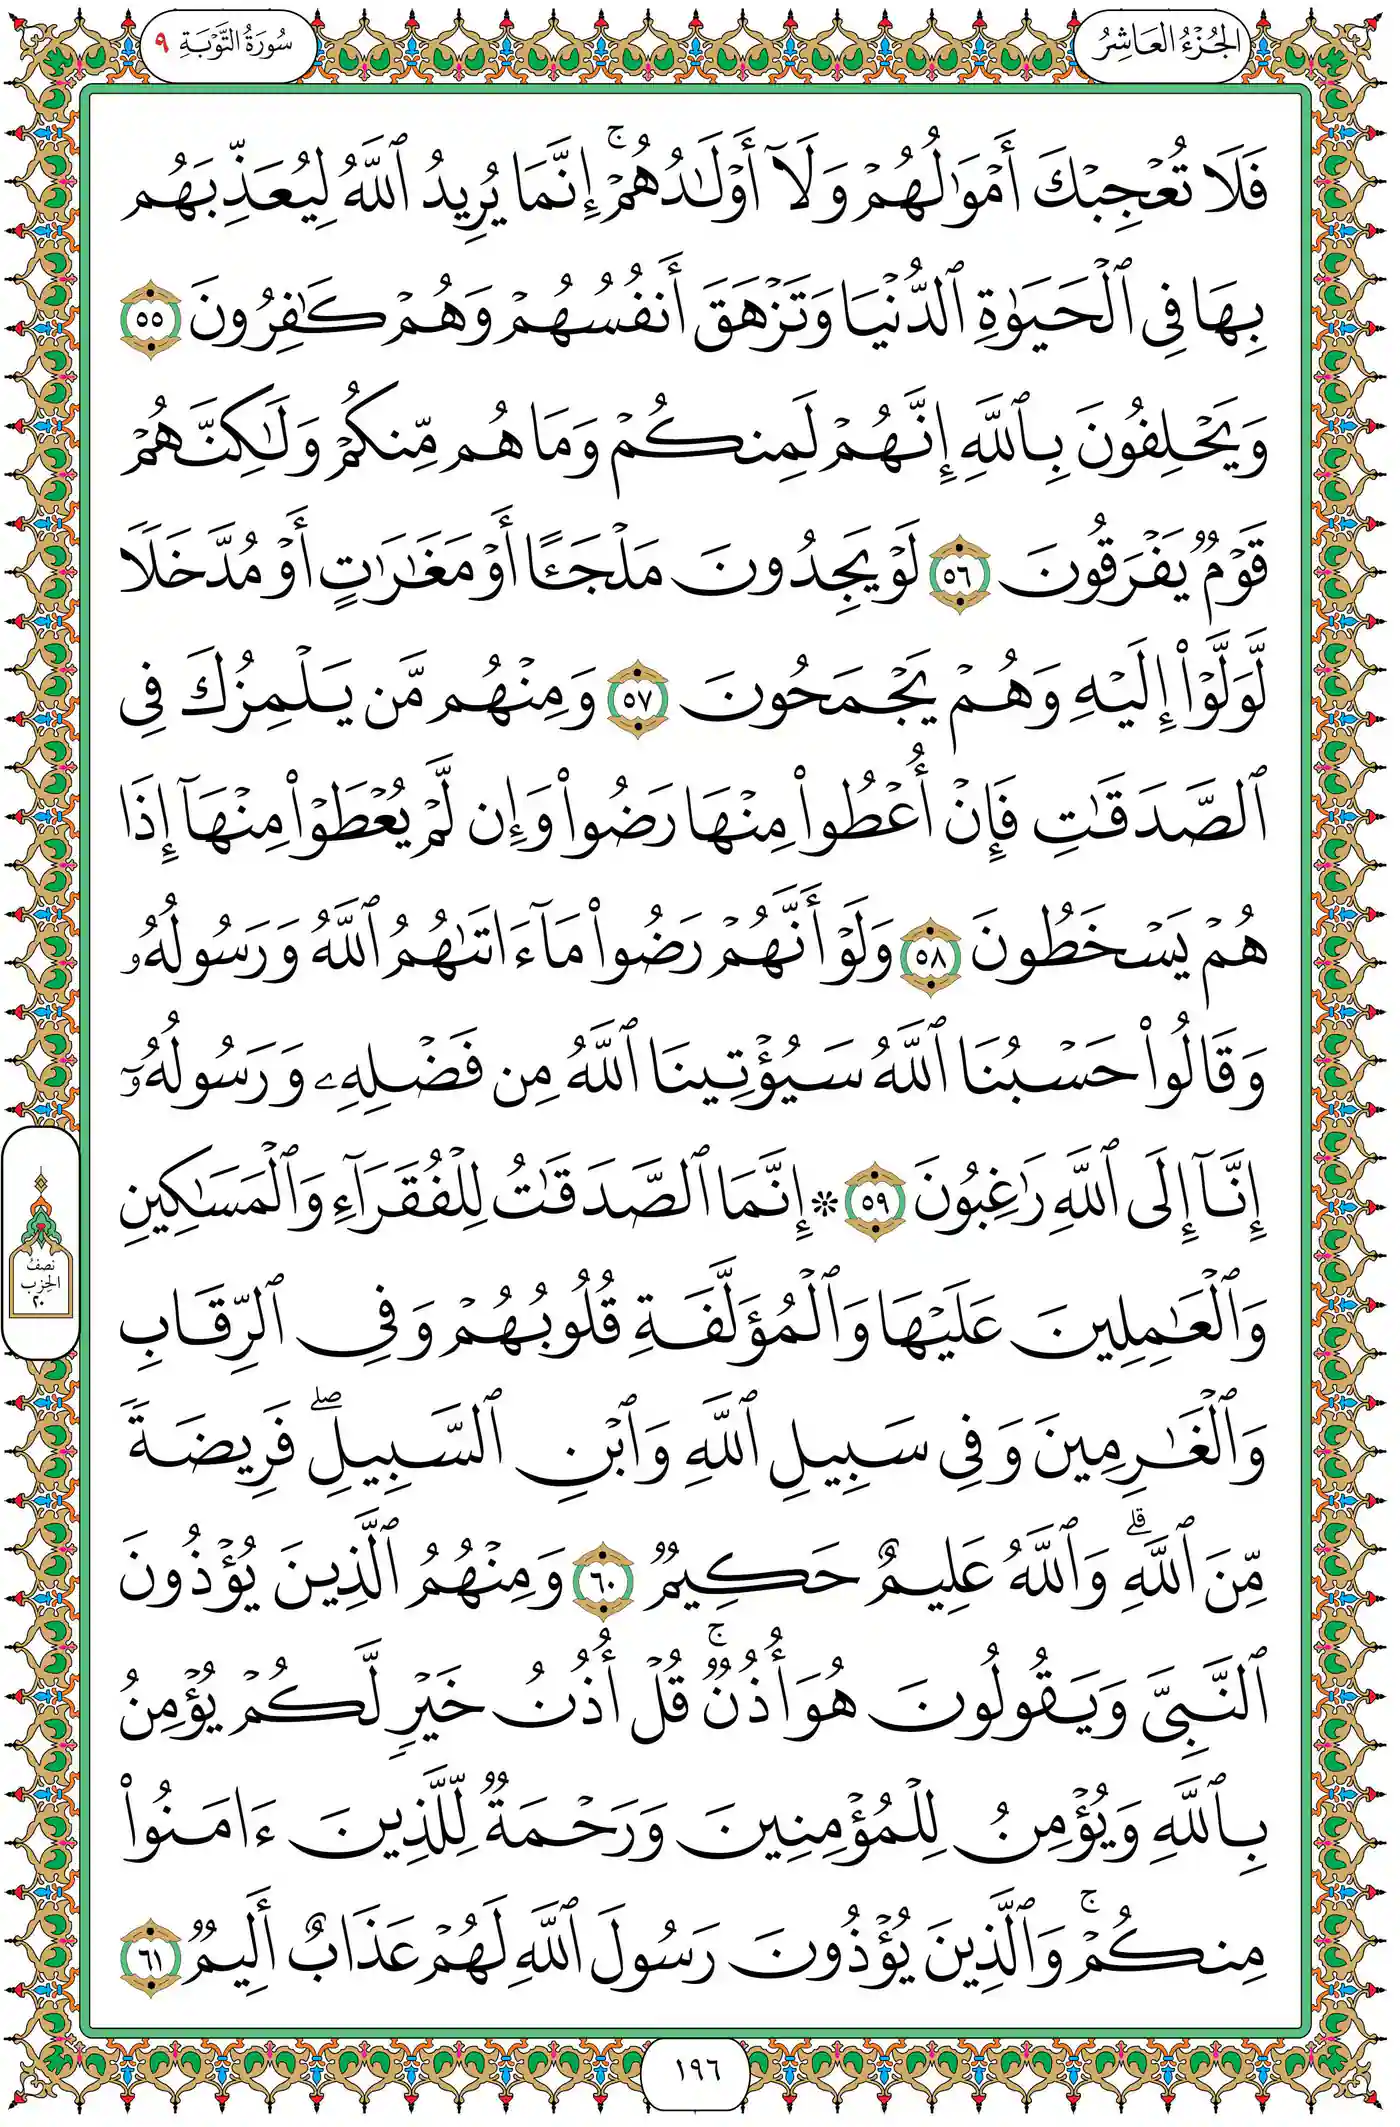 الجُزْءُ العَاشِرُ
سُورَةُ التَّوْبَةِ ٩
فَلَا تُعْجِبْكَ أَمْوَٰلُهُمْ وَلَآ أَوْلَـٰدُهُمْ ۚ إِنَّمَا يُرِيدُ ٱللَّهُ لِيُعَذِّبَهُم
بِهَا فِى ٱلْحَيَوٰةِ ٱلدُّنْيَا وَتَزْهَقَ أَنفُسُهُمْ وَهُمْ كَـٰفِرُونَ ٥٥
وَيَحْلِفُونَ بِٱللَّهِ إِنَّهُمْ لَمِنكُمْ وَمَا هُم مِّنكُمْ وَلَـٰكِنَّهُمْ
قَوْمٌ يَفْرَقُونَ ٥٦ لَوْ يَجِدُونَ مَلْجَـًٔا أَوْ مَغَـٰرَٰتٍ أَوْ مُدَّخَلًا
لَّوَلَّوْا۟ إِلَيْهِ وَهُمْ يَجْمَحُونَ ٥٧ وَمِنْهُم مَّن يَلْمِزُكَ فِى
ٱلصَّدَقَـٰتِ فَإِنْ أُعْطُوا۟ مِنْهَا رَضُوا۟ وَإِن لَّمْ يُعْطَوْا۟ مِنْهَآ إِذَا
هُمْ يَسْخَطُونَ ٥٨ وَلَوْ أَنَّهُمْ رَضُوا۟ مَآ ءَاتَىٰهُمُ ٱللَّهُ وَرَسُولُهُۥ
وَقَالُوا۟ حَسْبُنَا ٱللَّهُ سَيُؤْتِينَا ٱللَّهُ مِن فَضْلِهِۦ وَرَسُولُهُۥٓ
إِنَّآ إِلَى ٱللَّهِ رَٰغِبُونَ ٥٩ * إِنَّمَا ٱلصَّدَقَـٰتُ لِلْفُقَرَآءِ وَٱلْمَسَـٰكِينِ
وَٱلْعَـٰمِلِينَ عَلَيْهَا وَٱلْمُؤَلَّفَةِ قُلُوبُهُمْ وَفِى ٱلرِّقَابِ
وَٱلْغَـٰرِمِينَ وَفِى سَبِيلِ ٱللَّهِ وَٱبْنِ ٱلسَّبِيلِ ۖ فَرِيضَةً
مِّنَ ٱللَّهِ ۗ وَٱللَّهُ عَلِيمٌ حَكِيمٌ ٦٠ وَمِنْهُمُ ٱلَّذِينَ يُؤْذُونَ
ٱلنَّبِىَّ وَيَقُولُونَ هُوَ أُذُنٌ ۚ قُلْ أُذُنُ خَيْرٍ لَّكُمْ يُؤْمِنُ
بِٱللَّهِ وَيُؤْمِنُ لِلْمُؤْمِنِينَ وَرَحْمَةٌ لِّلَّذِينَ ءَامَنُوا۟
مِنكُمْ ۚ وَٱلَّذِينَ يُؤْذُونَ رَسُولَ ٱللَّهِ لَهُمْ عَذَابٌ أَلِيمٌ ٦١
نصفُ
الحِزب
٢٠
١٩٦